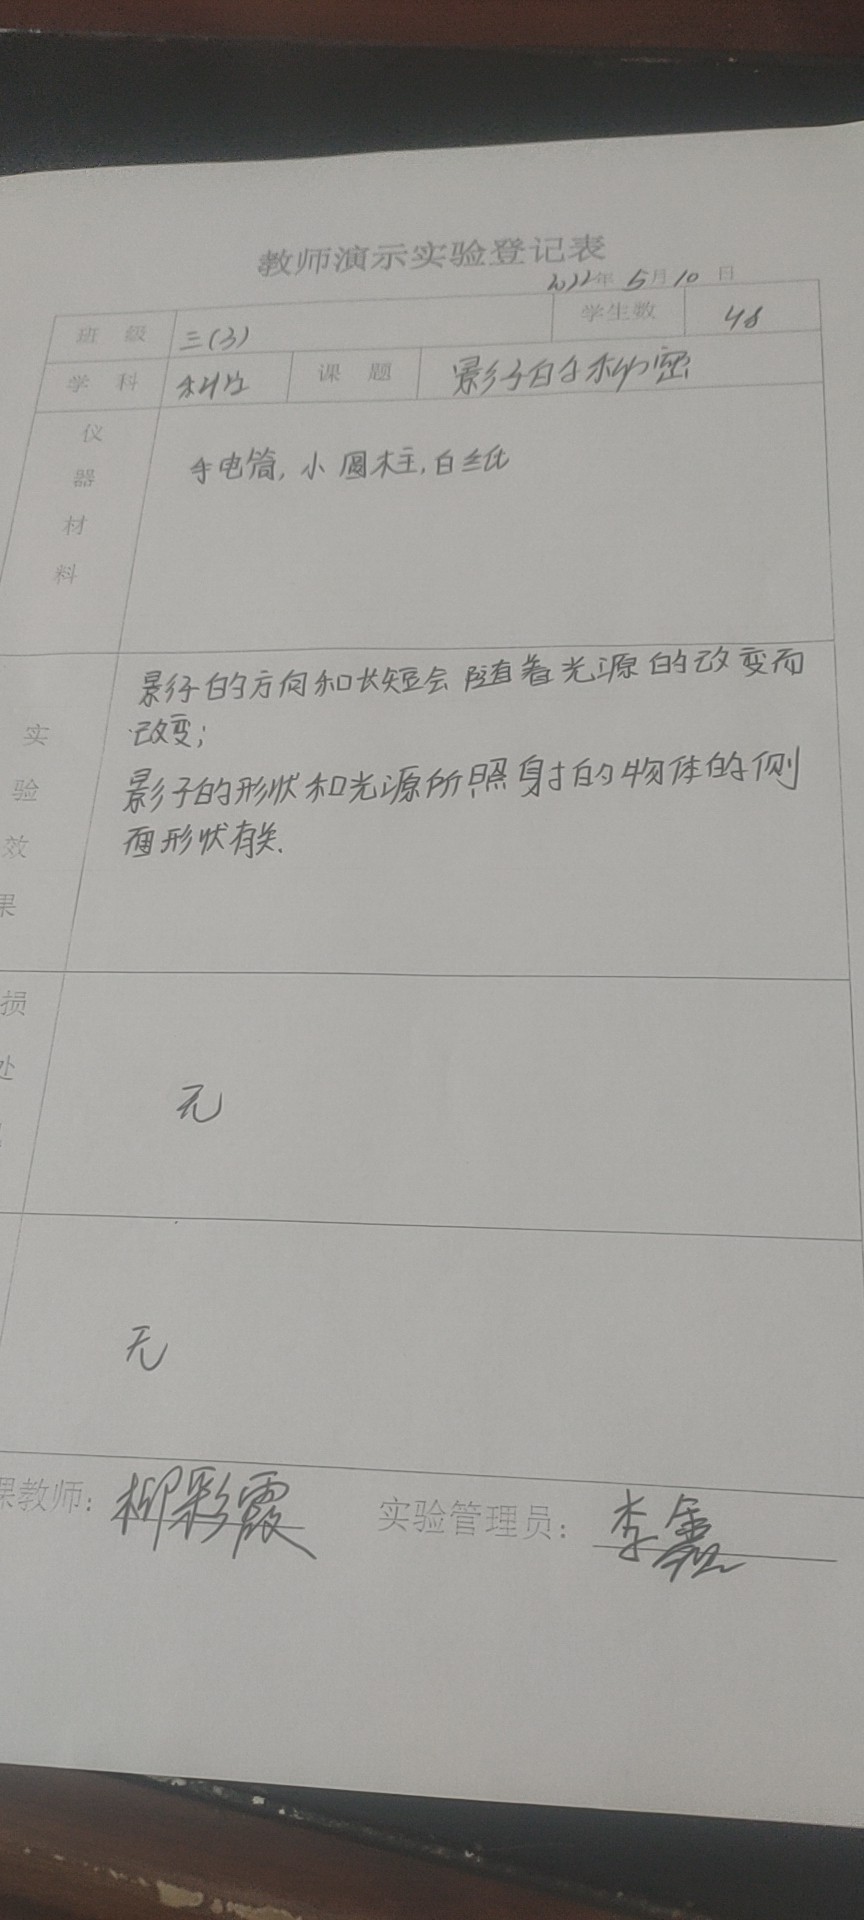 教师演示实验登记表
2022年 5月 10 日
班 级 三(3) 学生数 48
学 科 科学 课 题 影子的秘密
仪
器
材
料
手电筒, 小圆柱, 白纸
实
验
效
果
影子的方向和长短会随着光源的改变而
改变;
影子的形状和光源所照射的物体的侧
面形状有关.
损
处
无
无
课教师: 柳彩霞 实验管理员: 李鑫